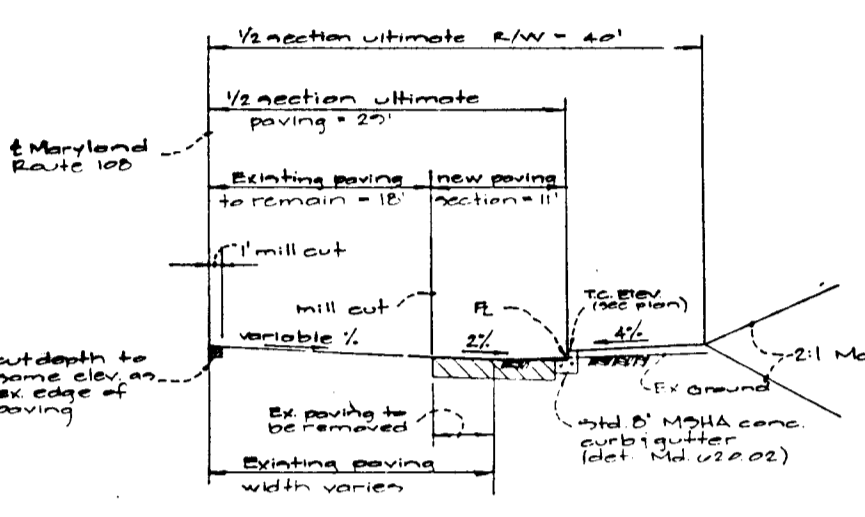 1/2 section ultimate R/W = 40'
1/2 section ultimate
paving = 29'
℄ Maryland
Route 108
Existing paving
to remain = 18'
new paving
section = 11'
1' mill cut
mill cut
T.C. Elev.
(see plan)
variable %
2%
4%
cut depth to
same elev. as
ex. edge of
paving
2:1
Ex ground
Ex. paving to
be removed
std. 8" MSHA conc.
curb & gutter
(det. Md. 620.02)
Existing paving
width varies